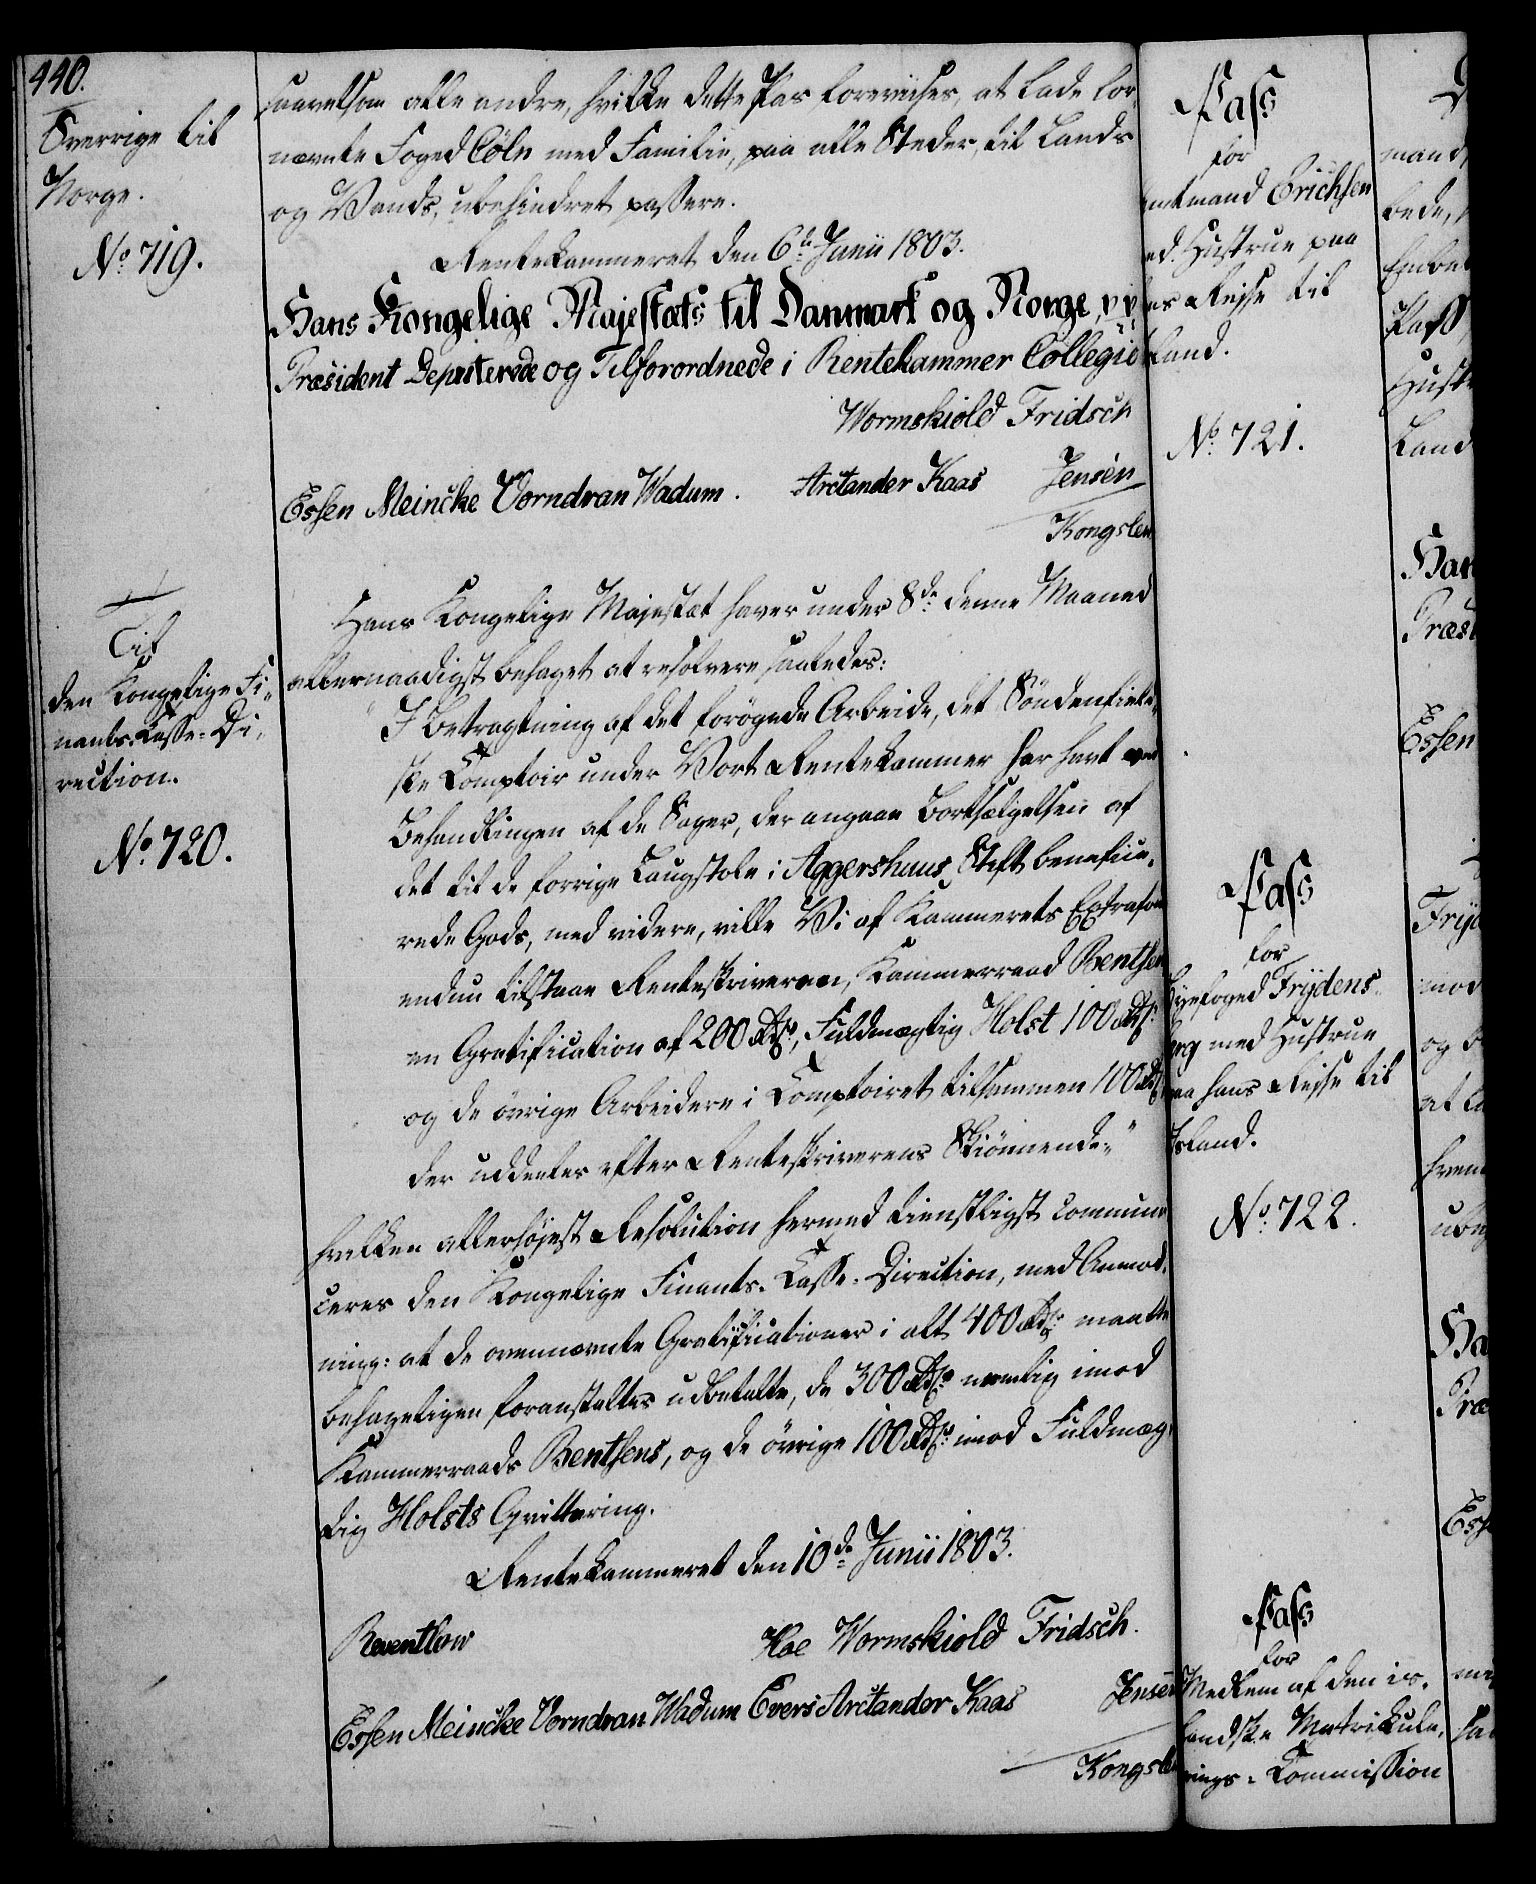 440.
Sverrige til
Norge.
No. 719.
saavelsom alle andre, hvilke dette Pas forevises, at lade for-
nævnte Foged Cöln med Familie, paa alle Steder, til Lands
og Vands, ubehindret passere.
Rentekammeret den 6de Junii 1803.
Hans Kongelige Majestæts til Danmark og Norge, pp
Præsident Deputerede og Tilforordnede i Rentekammer Collegie
Wormskiold Fridsch
Essen Meincke Vorndran Wadum. Arctander Kaas Jensen
Kongslev
Til
den Kongelige Fi-
nants-Casse-Di-
rection.
No. 720.
Hans Kongelige Majestæt haver under 8de denne Maaned
allernaadigst behaget at resolvere saaledes:
"I Betragtning af det forögede Arbeide, det Söndenfield-
ske Comptoir under Vort Rentekammer har havt ved
Behandlingen af de Sager, der angaae Bortsælgelsen af
det til de forrige Laugstole i Aggershuus Stift benefice-
rede Gods, med videre, ville Vi af Kammerets Extrafond
endnu tilstaae Renteskriveren, Kammerraad Benthsen
en Gratification af 200 Rdlr., Fuldmægtig Holst 100 Rdlr.
og de övrige Arbeidere i Comptoiret tilsammen 100 Rdlr.
der uddeeles efter Renteskriverens Skiönnende."
hvilken allerhöjest Resolution hermed tienstligst communi-
ceres den Kongelige Finants-Casse-Direction, med Anmod-
ning: at de ovennævnte Gratificationer i alt 400 Rdlr. maatte
behageligen foranstaltes udbetalte, de 300 Rdlr. nemlig imod
Kammerraads Benthsens, og de övrige 100 Rdlr. imod Fuldmæg-
tig Holsts Qvittering.
Rentekammeret den 10de Junii 1803.
Reventlow Hoe Wormskiold Fridsch.
Essen Meincke Vorndran Wadum Evers Arctander Kaas Jensen
Kongslev
Pass
for
Amtmand Erichsen
med Hustrue paa
hans Reise til
Island.
No. 721.
Pass
for
Byefoged Frydens-
berg med Hustrue
paa hans Reise til
Island.
No. 722.
Pass
for
Medlem af den is-
landske Matrikule-
rings-Commission
mand,
bede,
Pass
Land
Essen
mod
og